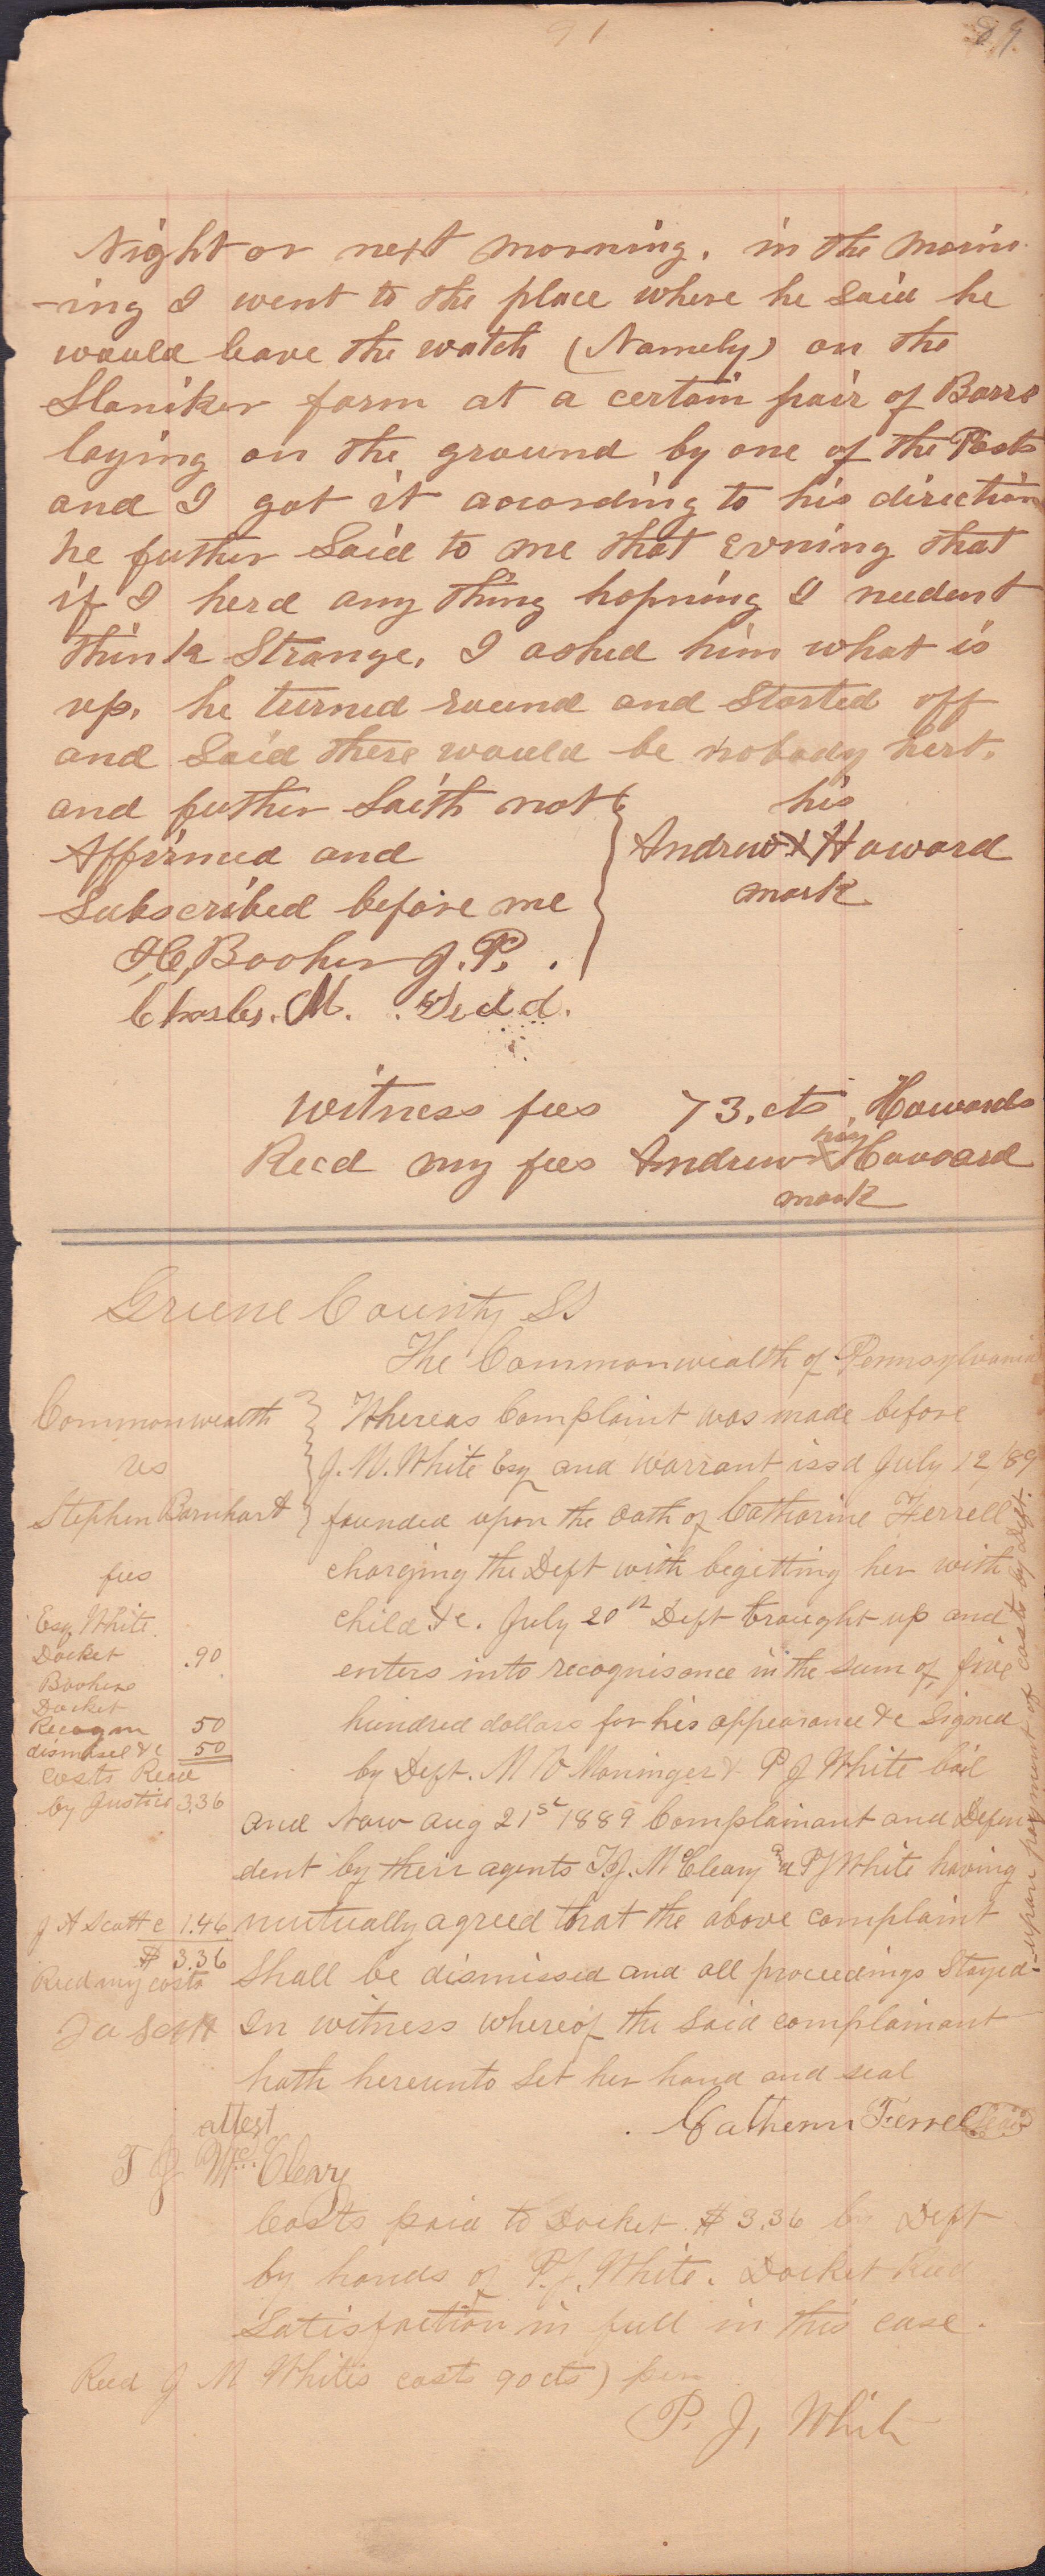 91
89
Night or next morning. in the morn
-ing I went to the place where he said he
would leave the watch (Namely) on the
Slaniker farm at a certain pair of Barrs
laying on the ground by one of the Posts
and I got it acording to his direction
he futher Said to me that Evning that
if I herd any thing hopning I neednt
think Strange. I asked him what is
up. he turned round and Started off
and Said there would be nobody hert.
and futher Saith not
his
Affirmed and
Andrew X Howard
Subscribed before me
mark
Booher J.P.
Charles. M.
witness fees 73.cts Howards
Recd my fees Andrew X Howard
his
mark
Greene County SS
The Commonwealth of Pennsylvania
Commonwealth
vs
Stephen Barnhart
Whereas Complaint was made before
J. M. White Esq and Warrant issd July 12/89
founded upon the Oath of Catharine Ferrell
charging the Deft with begitting her with
child &c. July 20th Deft brought up and
enters into recognisance in the sum of five
hundred dollars for his appearance &c Signed
by Deft. M V Moninger & P J White bail
and Now aug 21st 1889 Complainant and Defen
dent by their agents T.J. McCleary and P J White having
mutually agreed that the above complaint
Shall be dismissed and all proceedings Stayed-
-upon payment of costs by Deft.
In witness whereof the Said complainant
hath hereunto Set her hand and seal
Cathern Ferrel Seal
fees
Esq White.
Docket .90
Bookers
Docket
Recogn 50
dismissel &c 50
Costs Recd
by Justice 3.36
J A Scott c 1.46
$ 3.36
Recd my costs
J a Scott
attest
T J McCleary
Costs paid to Docket $3.36 by Deft
by hands of P.J. White. Docket Recd
Satisfaction in full in this case.
Recd J M Whites costs 90 cts) per
P. J, White